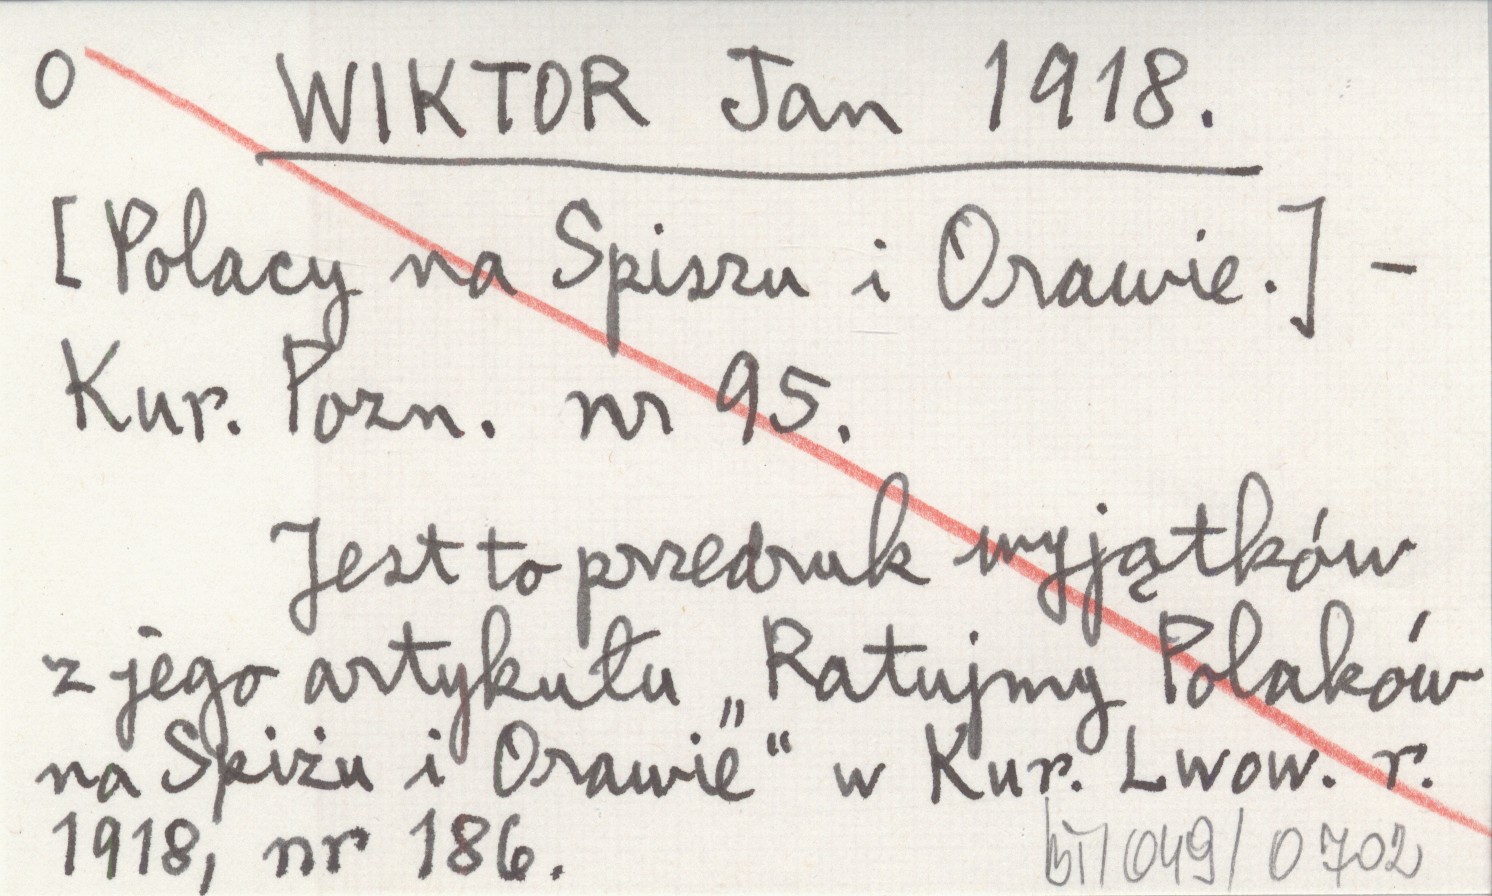 O WIKTOR Jan 1918.
[Polacy na Spiszu i Orawie.] -
Kur. Pozn. nr 95.
Jest to przedruk wyjątków
z jego artykułu „Ratujmy Polaków
na Spiżu i Orawie“ w Kur. Lwow. r.
1918, nr 186.
049/0702